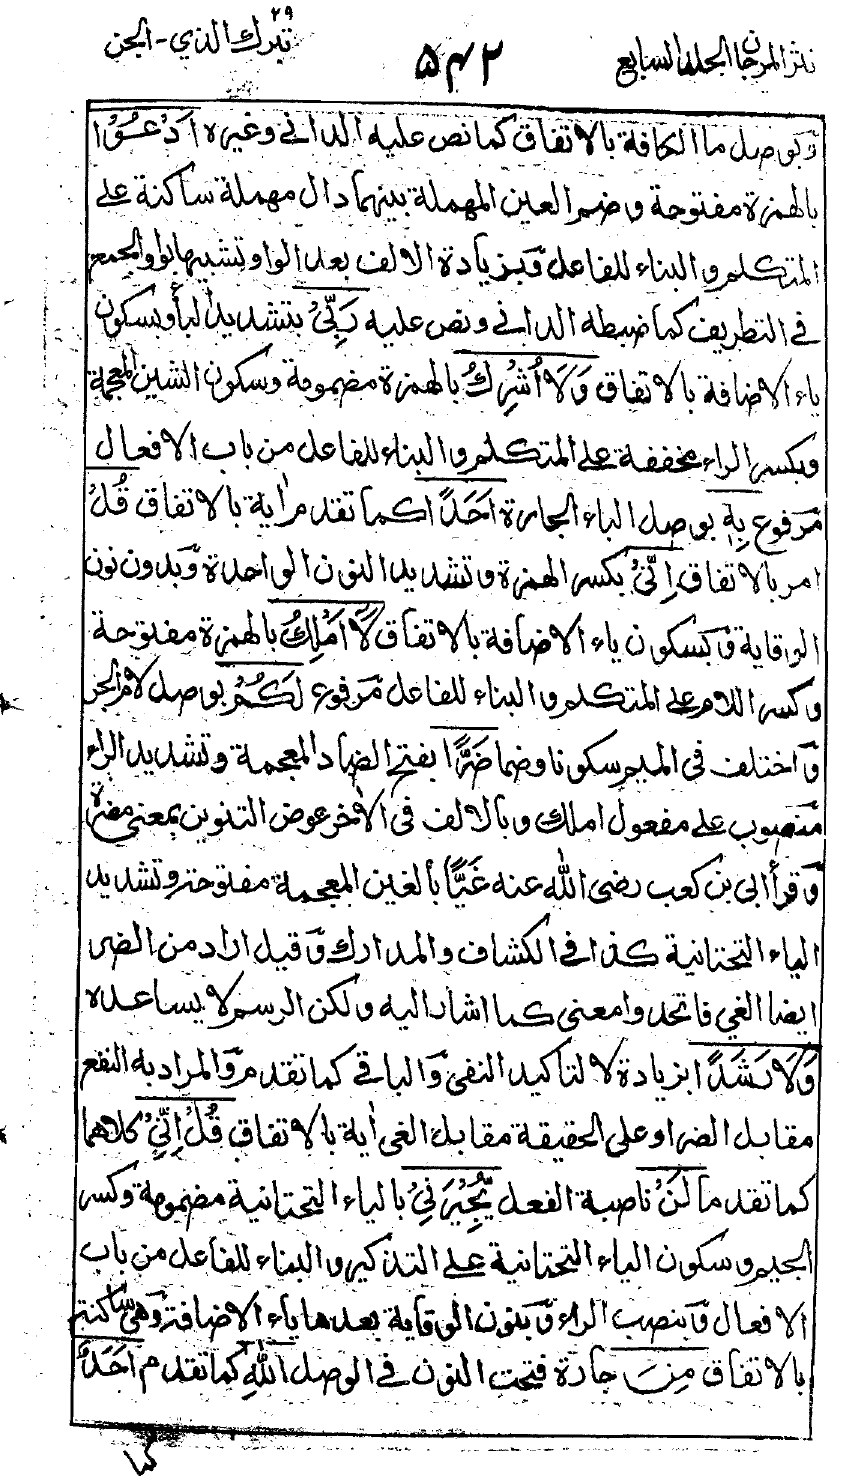 نثر المرجان الجلد السابع
۵۴۲
تبٰرك الذي ٢٩ - الجن
وَبوصل ما الكافة بالاتفاق كما نص عليه الداني وغيره اَدْعُوْا
بالهمزة مفتوحة وضم العين المهملة بينهما دال مهملة ساكنة على
المتكلم والبناء للفاعل وَبزيادة الالف بعد الواو تشبيها بواو الجمع
في التطريف كما ضبطه الداني ونص عليه رَبِّيْ بتشديد الباء وبسكون
ياء الاضافة بالاتفاق وَلَا اُشْرِكُ بالهمزة مضمومة وسكون الشين المعجمة
وبكسر الراء مخففة على المتكلم والبناء للفاعل من باب الافعال
مَرفوع بِهٖ بوصل الباء الجارة اَحَدًا كما تقدم اٰية بالاتفاق قُلْ
امر بالاتفاق اِنِّيْ بكسر الهمزة وتشديد النون الواحدة وَبدون نون
الوقاية وَبسكون ياء الاضافة بالاتفاق لَا اَمْلِكُ بالهمزة مفتوحة
وكسر اللام على المتكلم والبناء للفاعل مَرفوع لَكُمْ بوصل لام الجر
وَاختلف في الميم سكونا وضما ضَرًّا بفتح الضاد المعجمة وتشديد الراء
مَنصوب على مفعول املك وبالالف في الاٰخر عوض التنوين بمعنى مضرة
وَقرأ ابي بن كعب رضى الله عنه غَيًّا بالغين المعجمة مفتوحة وتشديد
الياء التحتانية كذا في الكشاف والمدارك وَقيل اراد من الضر
ايضا الغي فاتحدوا معنى كما اشار اليه ولكن الرسم لا يساعده
وَلَا رَشَدًا بزيادة لا لتاكيد النفى وَالباقي كما تقدم وَالمراد به النفع
مقابل الضر او على الحقيقة مقابل الغى اٰية بالاتفاق قُلْ اِنِّيْ كلاهما
كما تقدم لَنْ ناصبة الفعل يُّجِيْرَنِيْ بالياء التحتانية مضمومة وكسر
الجيم وسكون الياء التحتانية على التذكير والبناء للفاعل من باب
الافعال وَبنصب الراء وَبنون الوقاية بعدها ياء الاضافة وَهى ساكنة
بالاتفاق مِنَ جارة فتحت النون في الوصل اللهِ كما تقدم اَحَدٌ
كما